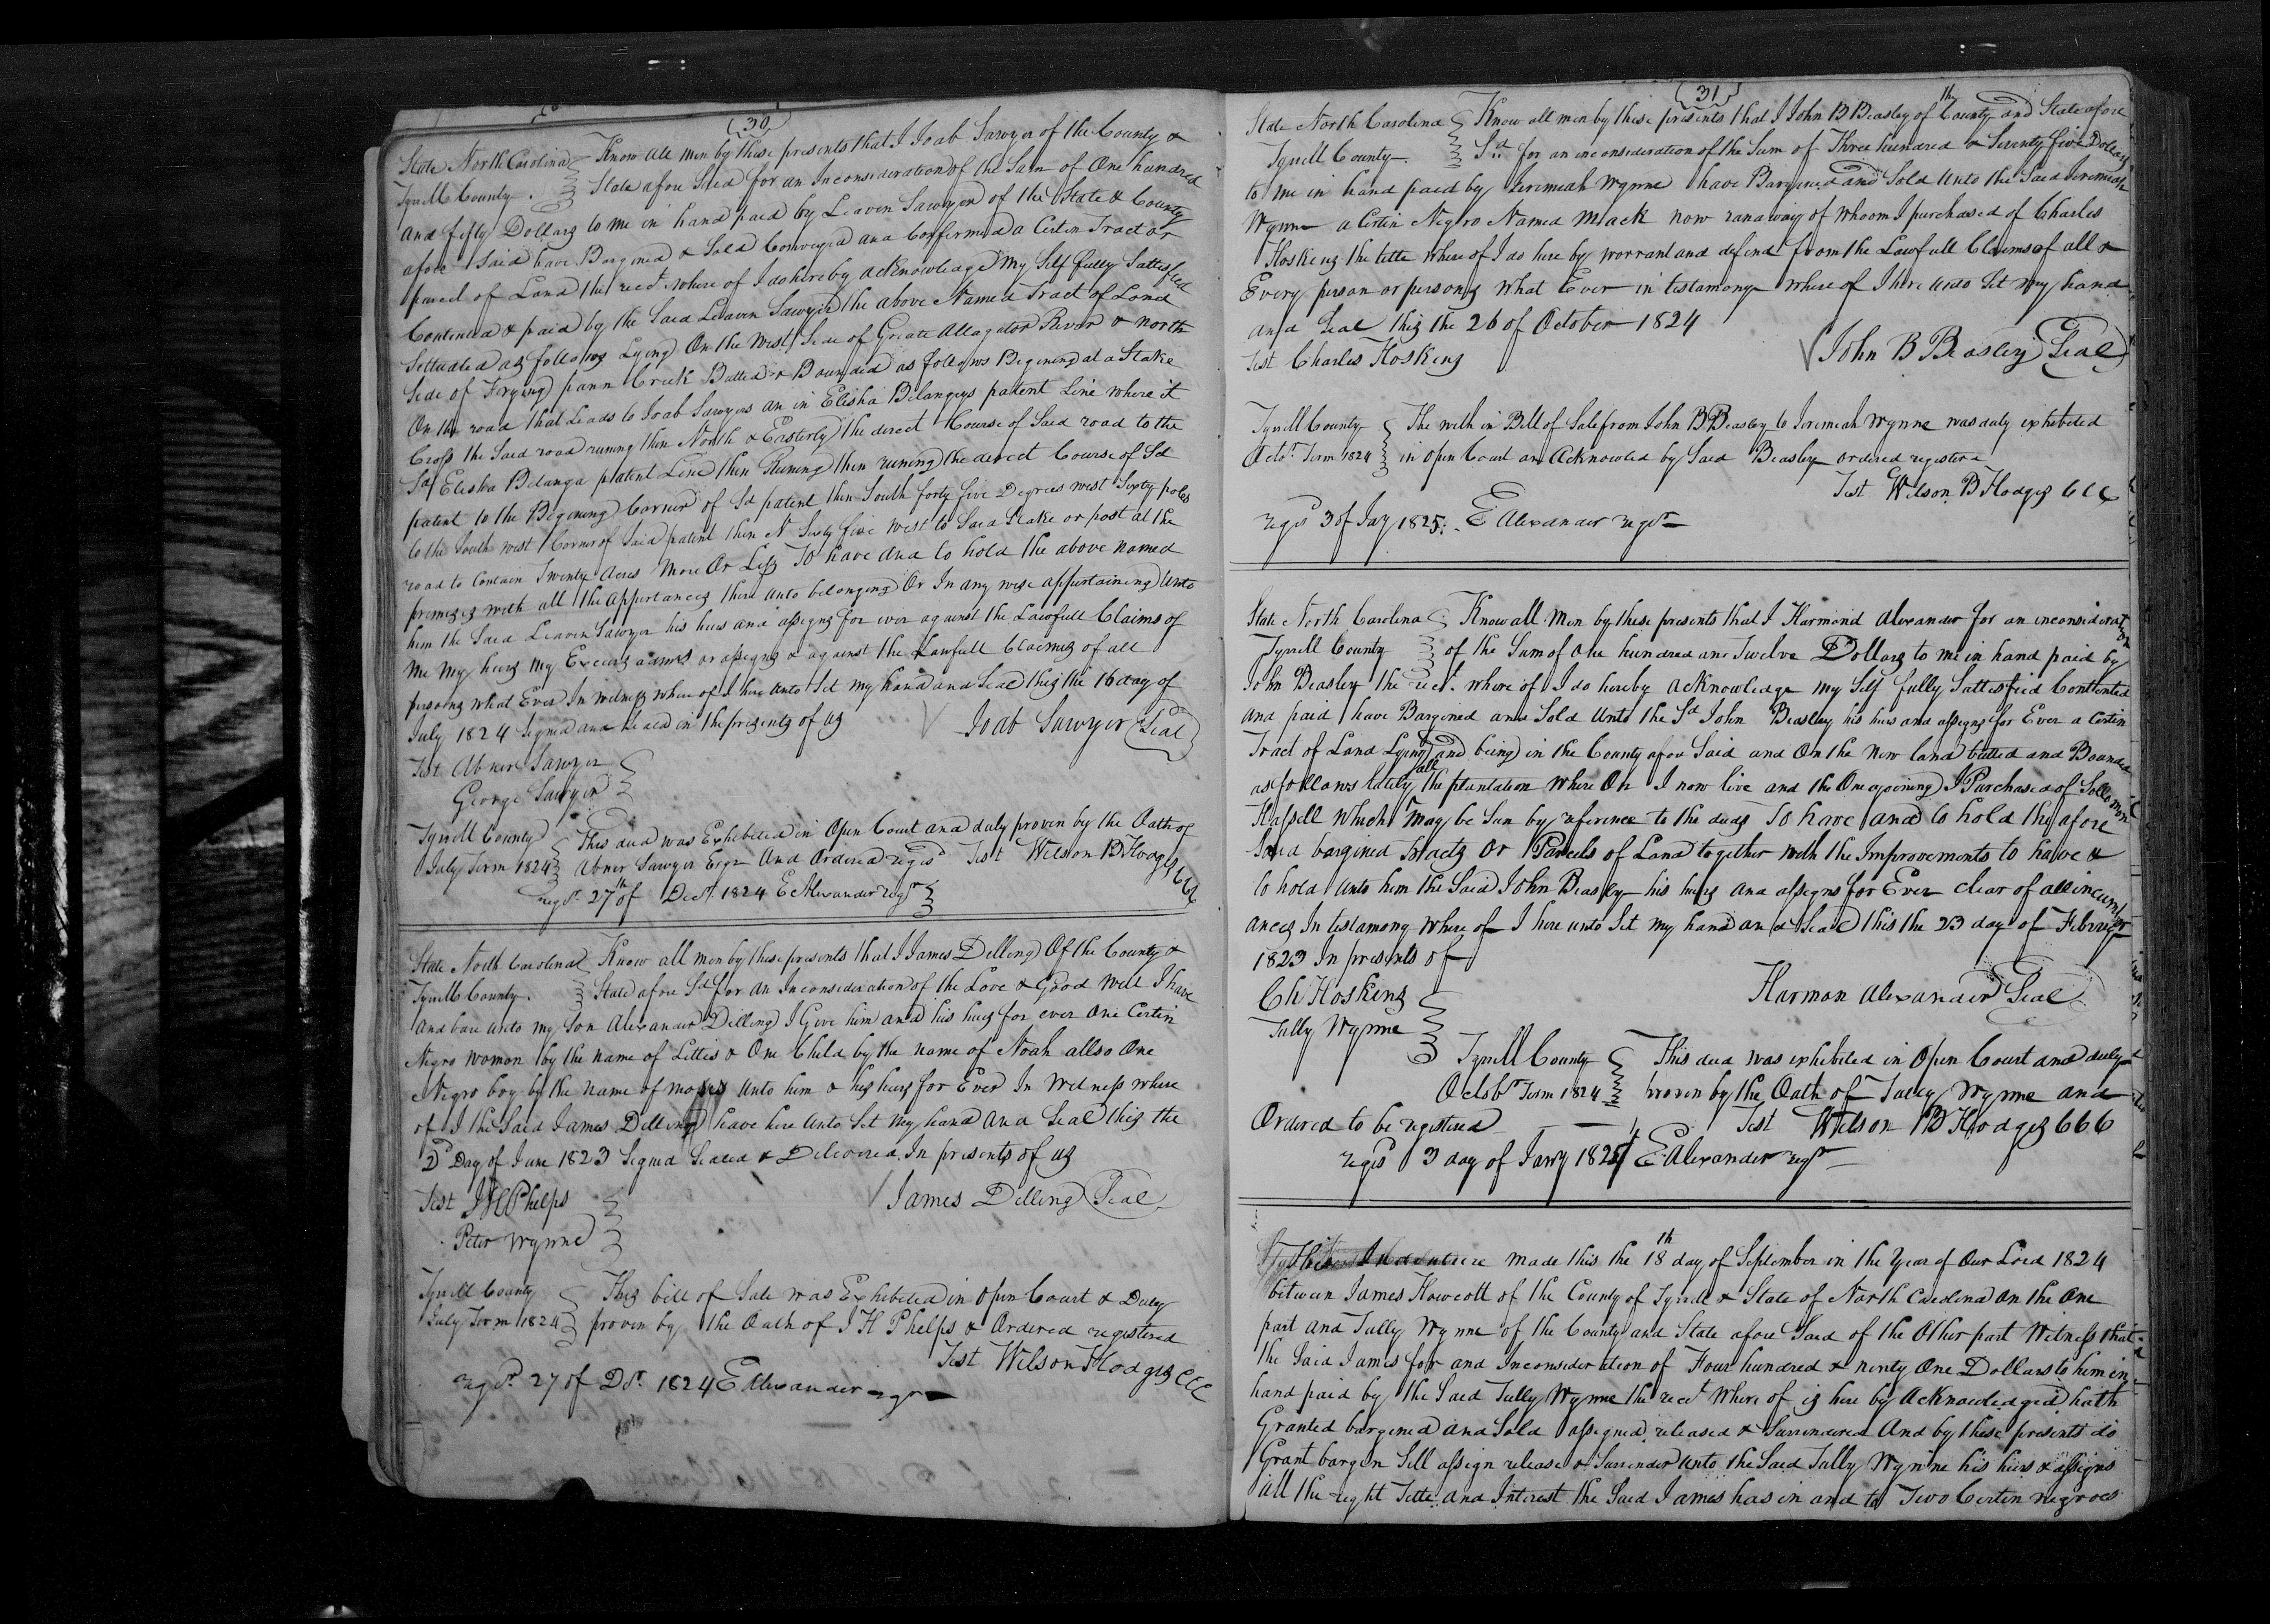 (30)
State North Carolina Know all men by these presents that I Joab Sawyer of the County &
Tyrrell County. State afore Said for an Inconsideration of the Sum of One hundred
and fifty Dollars to me in hand paid by Leaven Sawyer of the State & County
afore Said have Bargined & Sold Conveyed and Confermed a Certin Tract or
parcel of Land the rect. where of I do hereby acknowledge my Self fully Sattesfied
Contented & paid by the Said Leaven Sawyer the above Named Tract of Land
Settuated as follows Lying On the West Side of Greate Allagator River & north
Side of Frying pann Creek Butted & Bounded as follows Begining at a Stake
On the road that Leads to Joab Sawyers an in Elisha Belangys patent Line where it
Cross the Said road runing then North & Easterly the direct Course of Said road to the
Sd Elisha Belanga patent Line then Runing then runing the derect Course of Sd
patent to the Begining Corner of Sd patent then South forty five Degrees west Sixty poles
to the South west Corner of Said patent then N Sixty five West to Said Stake or post at the
road to Contain Twenty Acres More Or Less To have and to hold the above named
premises with all the appertances there unto belonging Or In any wise appertaining Unto
him the Said Leaven Sawyer his heirs and assigns for ever against the Lawfull Claims of
me my heirs my Execurs adms or assigns & against the Lawfull Claimes of all
persons what Ever In witness where of I here unto Set my hand and Seal this the 16 day of
July 1824 Signed and Sealed in the presents of us Joab Sawyer Seal
Test Abner Sawyer
George Sawyer
Tyrrell County This deed was Exhibeted in Open Court and duly proven by the Oath of
July Term 1824 Abner Sawyer Esqr And Ordered regisd Test Wilson B Hodges CCC
regd. 27th of Decr. 1824 E Alexander regr
State North Carolina Know all men by these presents that I James Delling Of the County &
Tyrrell County. State afore Sd for an Inconsideration of the Love & Good Will I have
and bare unto my Son Alexander Delling I Give him and his heirs for ever One Certin
Negro woman by the name of Lettis & One Child by the name of Noah allso One
Negro boy by the name of moses unto him & his heirs for Ever In Wetness where
of I the Said James Delling have here unto Set my hand and Seal this the
2d Day of June 1823 Signed Sealed & Delevered In presents of us
Test J H Phelps James Delling Seal
Peter Wynne
Tyrrell County This bill of Sale was Exhebeted in Open Court & Duly
July Term 1824 proven by the Oath of J H Phelps & Ordered registered
Test Wilson Hodges CCC
regd. 27 of Dr. 1824 E Alexander regr
(31)
State North Carolina Know all men by these presents that I John B Beasley of th County and State afore
Tyrrell County. Sd for an inconsideration of the Sum of Three hundred & Seventy five Dollars
to me in hand paid by Jeremiah Wynne have Bargined and Sold Unto the Said Jeremiah
Wynne a Certin Negro Named Mack now ranaway of whoom I purchased of Charles
Hoskins the tittle where of I do here by worrant and defend from the Lawfull Claims of all &
Every person or persons what Ever in testamony where of I here unto Set my hand
and Seal this the 26 of October 1824
Test Charles Hoskins John B Beasley Seal
Tyrrell County The with in Bill of Sale from John B Beasley to Jeremiah Wynne was duly exhibeted
Octor. Term 1824 in open Court an Acknowled by Said Beasley ordered registerd
Test Wilson B Hodges CCC
regisd 3 of Jay 1825: E Alexander regr
State North Carolina Know all Men by these presents that I Harmond Alexander for an inconsideration
Tyrrell County of the Sum of One hundred and Twelve Dollars to me in hand paid by
John Beasley the rect. where of I do hereby acknowledge my Self fully Sattesfied Contented
and paid have Bargined and Sold Unto the Sd John Beasley his heirs and assigns for Ever a Certin
Tract of Land Lying and being in the County afore Said and On the New land butted and Bounded
as followws lately all the plantation where On I now live and the One ajoining I Purchased of Sollomon
Hassell which may be Seen by referance to the deeds To have and to hold the afore
Said bargined tracts or Parcels of Land together with the Improvements to have &
to hold Unto him the Said John Beasley his heirs and assigns for Ever clear of all incumber
ances In testamony where of I here unto Set my hand and Seal this the 23 day of Febuary
1823 In presents of
Ch Hoskins Harmon Alexander Seal
Tully Wynne
Tyrrell County This deed was exhibeted in Open Court and duly
Octobr Term 1824 proven by the Oath of Tulley Wynne and
Ordered to be registered Test Wilson B Hodges CCC
regisd 3 day of Janry 1825 E Alexander regr
This Indenture made this the 18th day of September in the Year of Our Lord 1824
between James Howcott of the County of Tyrrell & State of North Carolina On the One
part and Tully Wynne of the County and State afore Said of the Other part Witness that
the Said James for and Inconsideration of Four hundred & ninty One Dollars to him in
hand paid by the Said Tully Wynne the rect where of is here by Acknowledged hath
Granted bargined and Sold assigned released & Surrendered And by these presents do
Grant bargin Sell assign release & Surrender unto the Said Tully Wynne his heirs & assigns
all the right Tittle and Interest the Said James has in and to Two Certin negroes